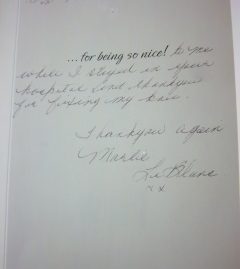 ...for being so nice! to me
while I stayed in your
hospital and thankyou
for fixing my knee.
Thankyou again
Marlie
LeBlanc
x x